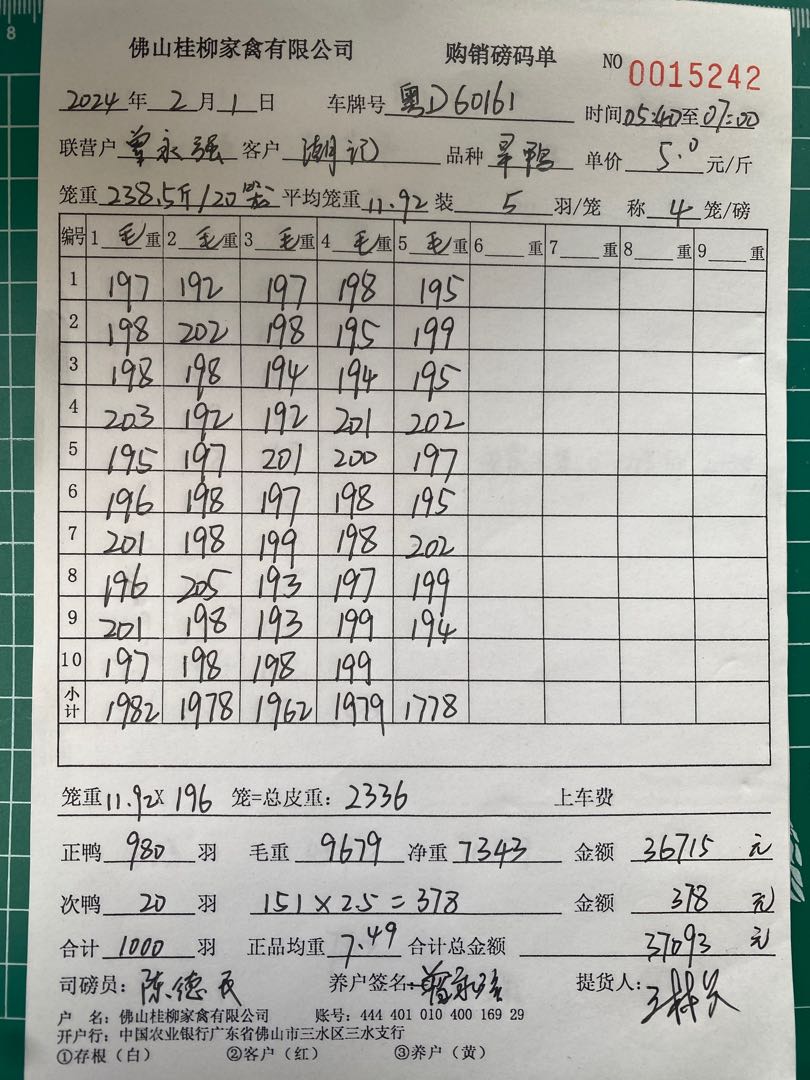 8
佛山桂柳家禽有限公司 购销磅码单 NO 0015242
2024年2月1日 车牌号 粤D60161 时间05:40至07:00
联营户 曾永强 客户 潮记 品种 旱鸭 单价 5.0 元/斤
笼重 238.5斤/20笼 平均笼重 11.92 装 5 羽/笼 称 4 笼/磅
编号 1毛重 2毛重 3毛重 4毛重 5毛重 6重 7重 8重 9重
1 197 192 197 198 195
2 198 202 198 195 199
3 198 198 194 194 195
4 203 192 192 201 202
5 195 197 201 200 197
6 196 198 197 198 195
7 201 198 199 198 202
8 196 205 193 197 199
9 201 198 193 199 194
10 197 198 198 199
小计 1982 1978 1962 1979 1778
笼重 11.92 X 196 笼=总皮重: 2336 上车费
正鸭 980 羽 毛重 9679 净重 7343 金额 36715 元
次鸭 20 羽 151×2.5=378 金额 378 元
合计 1000 羽 正品均重 7.49 合计总金额 37093 元
司磅员: 陈德 养户签名: 曾永强 提货人: 王
户 名: 佛山桂柳家禽有限公司 账号: 444 401 010 400 169 29
开户行: 中国农业银行广东省佛山市三水区三水支行
①存根（白） ②客户（红） ③养户（黄）